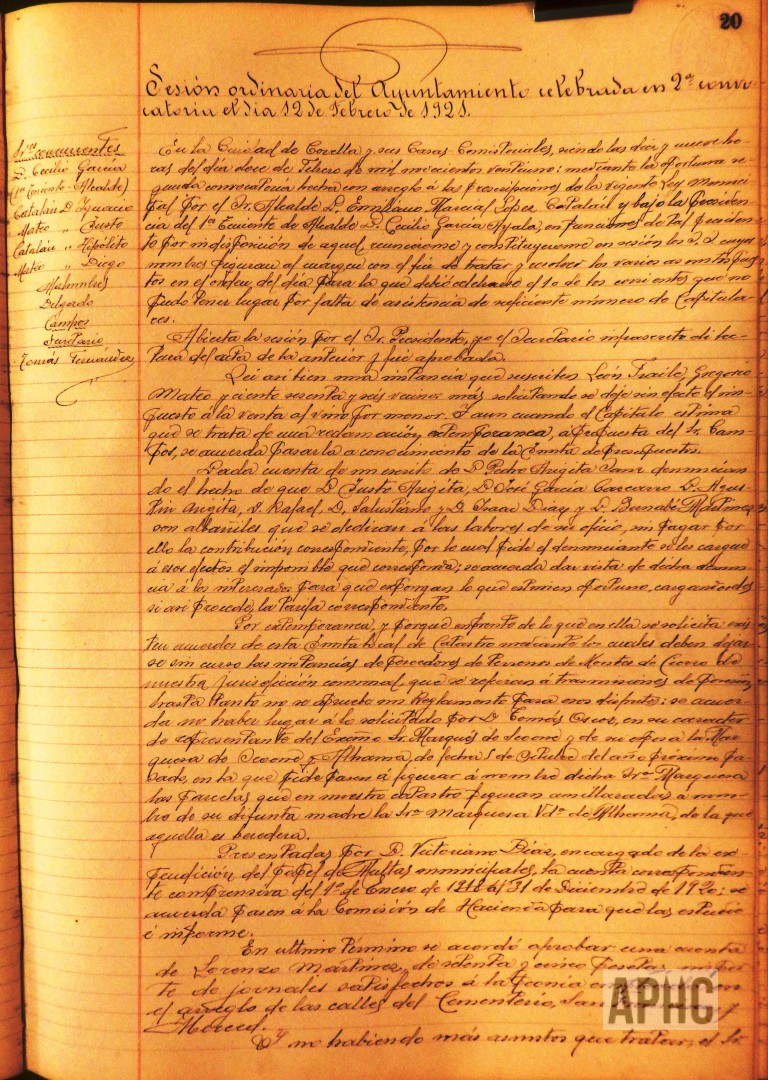 20
Sesión ordinaria del Ayuntamiento celebrada en 2ª convo-
catoria el dia 12 de Febrero de 1921.
Sres. concurrentes
D. Cecilio Garcia
(1er Teniente Alcalde)
Catalán D. Ignacio
Mateo " Justo
Catalán " Hipólito
Mateo " Diego
Delgado
Campos
Secretario
Tomás Fernandez
En la Ciudad de Corella y sus Casas Consistoriales, siendo las diez y nueve ho-
ras del dia doce de Febrero de mil novecientos veintiuno: mediante la oportuna se-
gunda convocatoria hecha con arreglo á las prescripciones de la vigente Ley Munici-
pal por el Sr. Alcalde D. Emiliano Marcial López Catalán y bajo la Presiden-
cia del 1er Teniente de Alcalde D. Cecilio Garcia Ayala, en funciones de tal presiden-
te por indisposición de aquel, reunieronse y constituyeronse en sesión los S.S. cuyos
nombres figuran al margen con el fin de tratar y resolver los varios asuntos pues-
tos en el orden del dia para la que debió celebrarse el 10 de los corrientes que no
pudo tener lugar por falta de asistencia de suficiente número de Capitula-
res.
Abierta la sesión por el Sr. Presidente, yo el Secretario infrascrito di lec-
tura del acta de la anterior y fué aprobada.
Leí asi bien una instancia que suscriben León Fraile, Gregorio
Mateo y ciento sesenta y seis vecinos más solicitando se deje sin efecto el im-
puesto á la venta al vino por menor. Y aun cuando el Capitulo estima
que se trata de una reclamación extemporanea, á propuesta del Sr. Cam-
pos, se acuerda pasarla a conocimiento de la Junta de presupuestos.
Dada cuenta de un escrito de D. Pedro Angita Sanz denuncian-
do el hecho de que D. Justo Angita, D. José Garcia Carcarro D. Agus-
tin Angita, D. Rafael, D. Salustiano y D. Isaac Diaz y D. Bernabé Martinez
son albañiles que se dedican á las labores de su oficio, sin pagar por
ello la contribución correspondiente, por lo cual pide el denunciante se les cargue
á esos efectos el imponible que corresponda; se acuerda dar vista de dicha denun-
cia á los interesados para que expongan lo que estimen oportuno, cargandoseles
si asi procede, la Tarifa correspondiente.
Por extemporanea, y porque enfrente de lo que en ella se solicita exis-
ten acuerdos de esta Junta local de Catastro mediante los cuales deben dejar-
se sin curso las instancias de poseedores de terrenos de Montes de Cierzo de
nuestra jurisdicción comunal que se refieran á trasmisiones de posesión
hasta tanto no se apruebe un Reglamento para esos disfrutes: se acuer-
da no haber lugar á lo solicitado por D. Tomás Oscoz, en su caracter
de representante del Excmo Sr. Marqués de y de su esposa la Mar-
quesa de y Alhama, de fecha 5 de Octubre del año próximo pa-
sado, en la que pide pasen á figurar á nombre dicha Sra. Marquesa
las parcelas que en nuestro catastro figuran amillaradas á nom-
bre de su difunta madre la Sra. Marquesa Vda. de Alhama, de la que
aquella es heredera.
Presentadas por D. Victoriano Diaz, encargado de la ex-
pendición del papel de Multas municipales, la cuenta correspondien-
te comprensiva del 1º de Enero de al 31 de Diciembre de 1920; se
acuerda pasen á la Comisión de Hacienda para que las estudie
é informe.
En ultimo término se acordó aprobar una cuenta
de Lorenzo Martinez, de setenta y cinco pesetas impor-
te de jornales satisfechos á la peonia en
el arreglo de las calles del Cementerio, San y
Merced.
Y no habiendo más asuntos que tratar, el Sr.
APHC